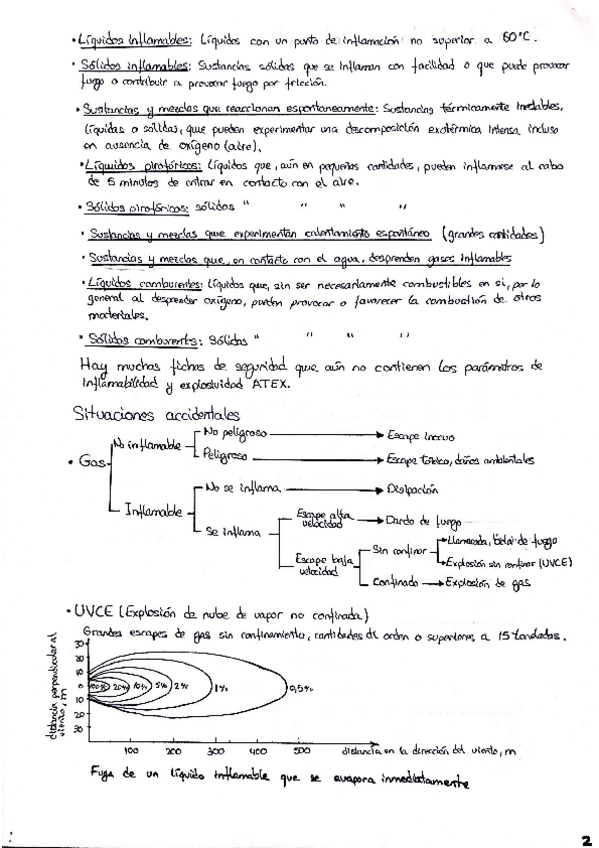 • Líquidos inflamables: Líquidos con un punto de inflamación no superior a 60°C.
• Sólidos inflamables: Sustancias sólidas que se inflaman con facilidad o que puede provocar
fuego o contribuir a provocar fuego por fricción.
• Sustancias y mezclas que reaccionan espontaneamente: Sustancias térmicamente inestables,
líquidas o sólidas, que pueden experimentar una descomposición exotérmica intensa incluso
en ausencia de oxígeno (aire).
• Líquidos pirofóricos: Líquidos que, aún en pequeñas cantidades, pueden inflamarse al cabo
de 5 minutos de entrar en contacto con el aire.
• Sólidos pirofóricos: sólidos " " " "
• Sustancias y mezclas que experimentan calentamiento espontáneo (grandes cantidades)
• Sustancias y mezclas que, en contacto con el agua, desprenden gases inflamables
• Líquidos comburentes: Líquidos que, sin ser necesariamente combustibles en si, por lo
general al desprender oxígeno, pueden provocar o favorecer la combustión de otros
materiales.
• Sólidos comburentes: Sólidos " " " "
Hay muchas fichas de seguridad que aún no contienen los parámetros de
inflamabilidad y explosividad ATEX.
Situaciones accidentales
• Gas
No inflamable
No peligroso → Escape inocuo
Peligroso → Escape tóxico, daños ambientales
Inflamable
No se inflama → Disipación
Se inflama
Escape alta velocidad → Dardo de fuego
Escape baja velocidad
Sin confinar
Llamarada, bola de fuego
Explosión sin confinar (UVCE)
Confinado → Explosión de gas
• UVCE (Explosión de nube de vapor no confinada)
Grandes escapes de gas sin confinamiento, cantidades del orden o superiores a 15 toneladas.
distancia perpendicular al
viento, m
30
20
15
0
10
20
30
100% 20% 10% 5% 2% 1% 0,5%
100 200 300 400 500 distancia en la dirección del viento, m
Fuga de un líquido inflamable que se evapora inmediatamente
2